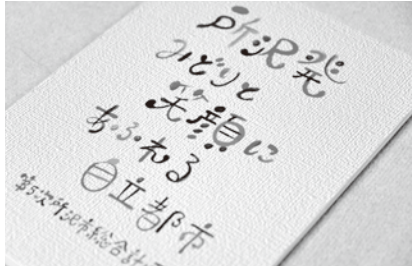 所沢発
みどりと
笑顔に
あふれる
自立都市
第5次所沢市総合計